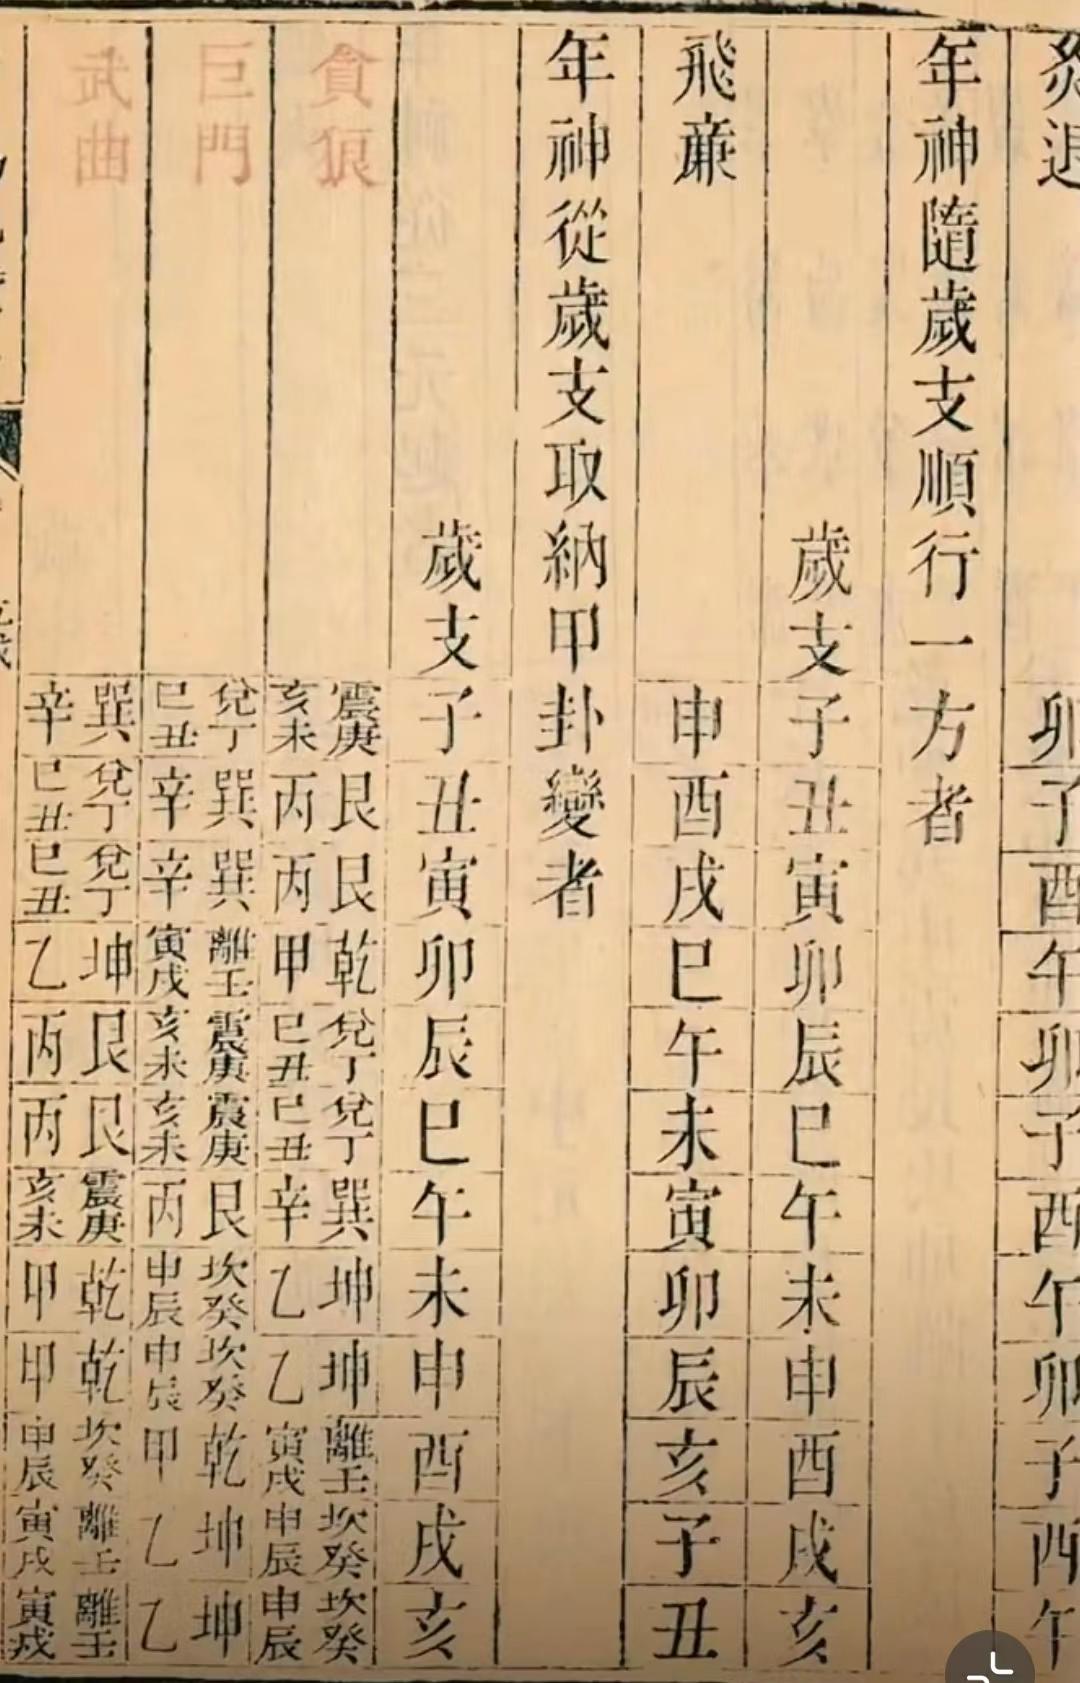 炙退 卯 子 酉 午 卯 子 酉 午 卯 子 酉 午
年神隨歲支順行一方者
歲支 子 丑 寅 卯 辰 巳 午 未 申 酉 戌 亥
飛廉 申 酉 戌 巳 午 未 寅 卯 辰 亥 子 丑
年神從歲支取納甲卦變者
歲支 子 丑 寅 卯 辰 巳 午 未 申 酉 戌 亥
貪狼 震庚亥未 艮丙 艮丙 乾甲 兌丁巳丑 兌丁巳丑 巽辛 坤乙 坤乙 離壬寅戌 坎癸申辰 坎癸申辰
巨門 兌丁巳丑 巽辛 巽辛 離壬寅戌 震庚亥未 震庚亥未 艮丙 坎癸申辰 坎癸申辰 乾甲 坤乙 坤乙
武曲 巽辛 兌丁巳丑 兌丁巳丑 坤乙 艮丙 艮丙 震庚亥未 乾甲 乾甲 坎癸申辰 離壬寅戌 離壬寅戌